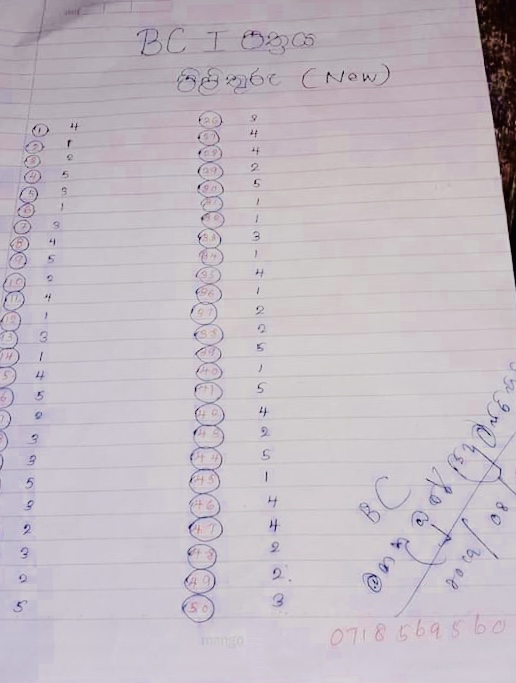 BC I පත්‍රය
පිළිතුරු (New)
1 4
2 1
3 2
4 5
5 3
6 1
7 3
8 4
9 5
10 2
11 4
12 1
13 3
14 1
5 4
6 5
7 2
3
3
5
3
2
3
2
5
26
27 4
28 4
29 2
30 5
31 1
32 1
33 3
34 1
35 4
36 1
37 2
38 2
39 5
40 1
41 5
42 4
43 2
44 5
45 1
46 4
47 4
48 2
49 2
50 3
BC
08
mango
0718569560